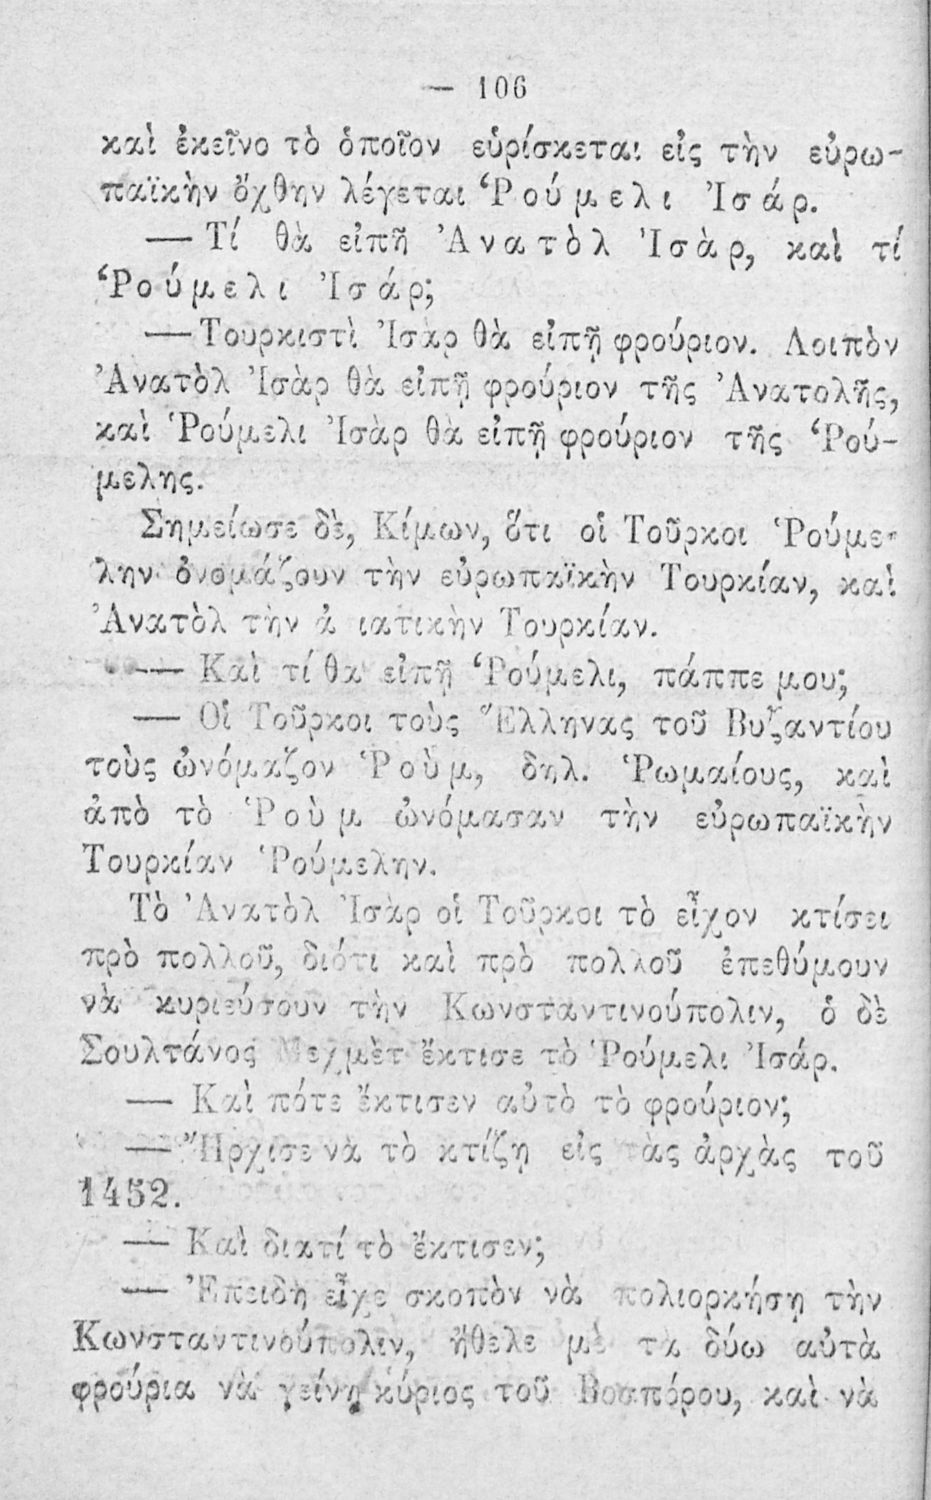 — 106
καὶ ἐκεῖνο τὸ ὁποῖον εὑρίσκεται εἰς τὴν εὐρω-
παϊκὴν ὄχθην λέγεται Ῥούμελι Ἰσάρ.
— Τί θὰ εἰπῇ Ἀνατὸλ Ἰσὰρ, καὶ τί
Ῥούμελι Ἰσάρ;
— Τουρκιστὶ Ἰσὰρ θὰ εἰπῇ φρούριον. Λοιπὸν
Ἀνατὸλ Ἰσὰρ θὰ εἰπῇ φρούριον τῆς Ἀνατολῆς,
καὶ Ῥούμελι Ἰσὰρ θὰ εἰπῇ φρούριον τῆς Ῥού-
μελης.
Σημείωσε δὲ, Κίμων, ὅτι οἱ Τοῦρκοι Ῥούμε-
λην ὀνομάζουν τὴν εὐρωπαϊκὴν Τουρκίαν, καὶ
Ἀνατὸλ τὴν ἀ ιατικὴν Τουρκίαν.
— Καὶ τί θὰ εἰπῇ Ῥούμελι, πάππε μου;
— Οἱ Τοῦρκοι τοὺς Ἕλληνας τοῦ Βυζαντίου
τοὺς ὠνόμαζον Ῥοὺμ, δηλ. Ῥωμαίους, καὶ
ἀπὸ τὸ Ῥοὺμ ὠνόμασαν τὴν εὐρωπαϊκὴν
Τουρκίαν Ῥούμελην.
Τὸ Ἀνατὸλ Ἰσὰρ οἱ Τοῦρκοι τὸ εἶχον κτίσει
πρὸ πολλοῦ, διότι καὶ πρὸ πολλοῦ ἐπεθύμουν
νὰ κυριεύσουν τὴν Κωνσταντινούπολιν, ὁ δὲ
Σουλτάνος Μεχμὲτ ἔκτισε τὸ Ῥούμελι Ἰσάρ.
— Καὶ πότε ἔκτισεν αὐτὸ τὸ φρούριον;
— Ἤρχισε νὰ τὸ κτίζῃ εἰς τὰς ἀρχὰς τοῦ
1452.
— Καὶ διατί τὸ ἔκτισεν;
— Ἐπειδὴ εἶχε σκοπὸν νὰ πολιορκήσῃ τὴν
Κωνσταντινούπολιν, ἤθελε μὲ τὰ δύω αὐτὰ
φρούρια νὰ γείνῃ κύριος τοῦ Βοσπόρου, καὶ νὰ